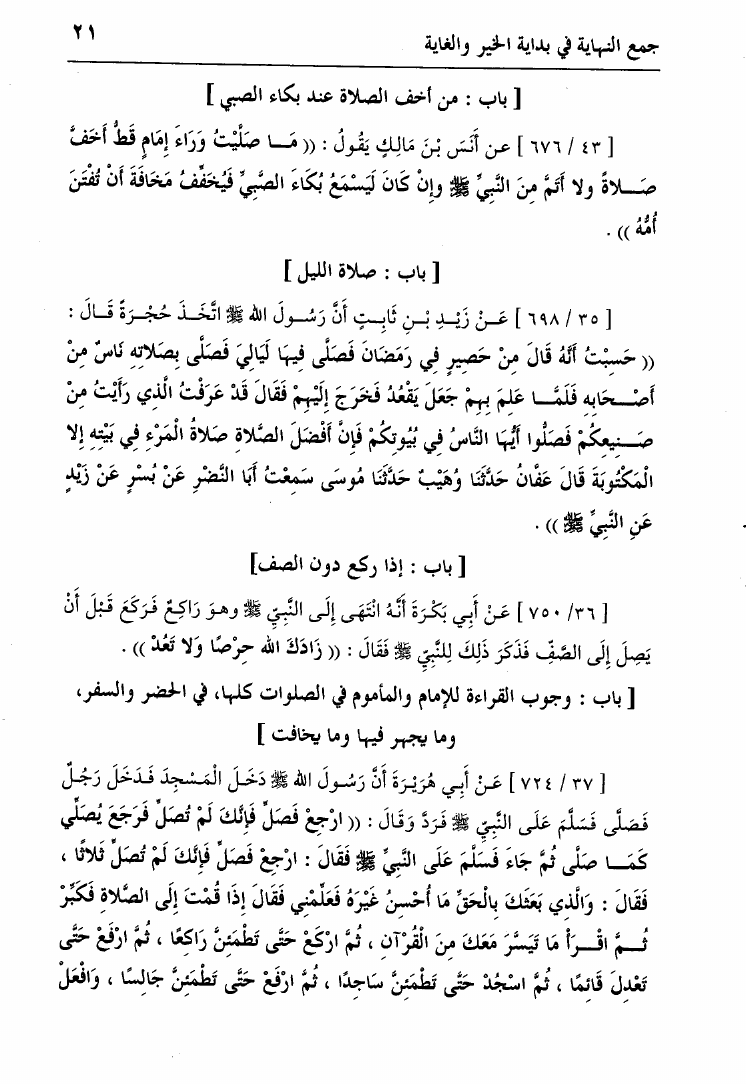 جمع النهاية في بداية الخير والغاية ٢١
[ باب : من أخف الصلاة عند بكاء الصبي ]
[ ٤٣ / ٦٧٦ ] عن أَنَسَ بْنَ مَالِكٍ يَقُولُ : (( مَــا صَلَّيْتُ وَرَاءَ إِمَامٍ قَطُّ أَخَفَّ
صَــلاةً ولا أَتَمَّ مِنَ النَّبِيِّ ﷺ وإِنْ كَانَ لَيَسْمَعُ بُكَاءَ الصَّبِيِّ فَيُخَفِّفُ مَخَافَةَ أَنْ تُفْتَنَ
أُمُّهُ )) .
[ باب : صلاة الليل ]
[ ٣٥ / ٦٩٨ ] عَــنْ زَيْــدِ بْــنِ ثَابِــتٍ أَنَّ رَسُــولَ الله ﷺ اتَّخَــذَ حُجْــرَةً قَــالَ :
(( حَسِبْتُ أَنَّهُ قَالَ مِنْ حَصِيرٍ فِي رَمَضَانَ فَصَلَّى فِيهَا لَيَالِيَ فَصَلَّى بِصَلاتِهِ نَاسٌ مِنْ
أَصْــحَابِهِ فَلَمَّــا عَلِمَ بِهِمْ جَعَلَ يَقْعُدُ فَخَرَجَ إِلَيْهِمْ فَقَالَ قَدْ عَرَفْتُ الَّذِي رَأَيْتُ مِنْ
صَــنِيعِكُمْ فَصَلُّوا أَيُّهَا النَّاسُ فِي بُيُوتِكُمْ فَإِنَّ أَفْضَلَ الصَّلاةِ صَلاةُ الْمَرْءِ فِي بَيْتِهِ إِلا
الْمَكْتُوبَةَ قَالَ عَفَّانُ حَدَّثَنَا وُهَيْبٌ حَدَّثَنَا مُوسَى سَمِعْتُ أَبَا النَّضْرِ عَنْ بُسْرٍ عَنْ زَيْدٍ
عَنِ النَّبِيِّ ﷺ )) .
[ باب : إذا ركع دون الصف]
[ ٣٦/ ٧٥٠ ] عَنْ أَبِي بَكْرَةَ أَنَّهُ انْتَهَى إِلَى النَّبِيِّ ﷺ وهوَ رَاكِعٌ فَرَكَعَ قَبْلَ أَنْ
يَصِلَ إِلَى الصَّفِّ فَذَكَرَ ذَلِكَ لِلنَّبِيِّ ﷺ فَقَالَ : (( زَادَكَ الله حِرْصًا وَلا تَعُدْ )) .
[ باب : وجوب القراءة للإمام والمأموم في الصلوات كلها، في الحضر والسفر،
وما يجهر فيها وما يخافت ]
[ ٣٧ / ٧٢٤ ] عَــنْ أَبِي هُرَيْرَةَ أَنَّ رَسُولَ الله ﷺ دَخَلَ الْمَسْجِدَ فَدَخَلَ رَجُلٌ
فَصَلَّى فَسَلَّمَ عَلَى النَّبِيِّ ﷺ فَرَدَّ وَقَالَ : (( ارْجِعْ فَصَلِّ فَإِنَّكَ لَمْ تُصَلِّ فَرَجَعَ يُصَلِّي
كَمَــا صَلَّى ثُمَّ جَاءَ فَسَلَّمَ عَلَى النَّبِيِّ ﷺ فَقَالَ : ارْجِعْ فَصَلِّ فَإِنَّكَ لَمْ تُصَلِّ ثَلاثًا ،
فَقَالَ : وَالَّذِي بَعَثَكَ بِالْحَقِّ مَا أُحْسِنُ غَيْرَهُ فَعَلِّمْنِي فَقَالَ إِذَا قُمْتَ إِلَى الصَّلاةِ فَكَبِّرْ
ثُــمَّ اقْــرَأْ مَا تَيَسَّرَ مَعَكَ مِنَ الْقُرْآنِ ، ثُمَّ ارْكَعْ حَتَّى تَطْمَئِنَّ رَاكِعًا ، ثُمَّ ارْفَعْ حَتَّى
تَعْدِلَ قَائِمًا ، ثُمَّ اسْجُدْ حَتَّى تَطْمَئِنَّ سَاجِدًا ، ثُمَّ ارْفَعْ حَتَّى تَطْمَئِنَّ جَالِسًا ، وَافْعَلْ